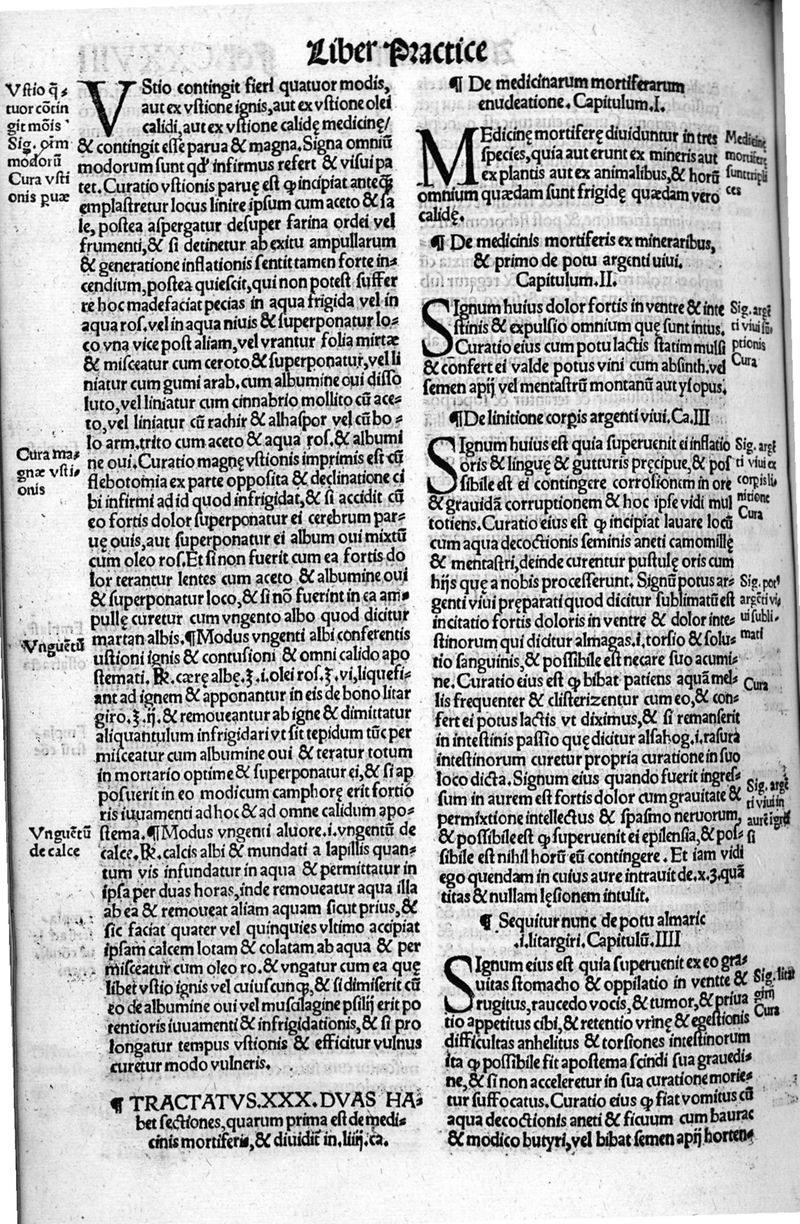 Liber Practice
Vstio q̃-
tuor cõtin
git mõis
Sig. oĩm
modorũ
Cura vsti
onis puæ
VStio contingit fieri quatuor modis,
aut ex vstione ignis, aut ex vstione olei
calidi, aut ex vstione calidę medicinę/
& contingit esse parua & magna. Signa omniũ
modorum sunt qd' infirmus refert & visui pa
tet. Curatio vstionis paruę est ꝙ incipiat anteq̃
emplastretur locus linire ipsum cum aceto & sa
le, postea aspergatur desuper farina ordei vel
frumenti, & si detinetur ab exitu ampullarum
& generatione inflationis sentit tamen forte in-
cendium, postea quiescit, qui non potest suffer
re hoc madefaciat pecias in aqua frigida vel in
aqua ros. vel in aqua niuis & superponatur lo-
co vna vice post aliam, vel vrantur folia mirtæ
& misceatur cum ceroto & superponatur, vel li
niatur cum gumi arab. cum albumine oui disso
luto, vel liniatur cum cinnabrio mollito cũ ace-
to, vel liniatur cũ rachir & alhaspor vel cũ bo-
lo arm. trito cum aceto & aqua ros. & albumi
ne oui. Curatio magnę vstionis imprimis est cũ
flebotomia ex parte opposita & declinatione ci
bi infirmi ad id quod infrigidat, & si accidit cũ
eo fortis dolor superponatur ei cerebrum par-
uę ouis, aut superponatur ei album oui mixtũ
cum oleo ros. Et si non fuerit cum ea fortis do
lor terantur lentes cum aceto & albumine oui
& superponatur loco, & si nõ fuerint in ea am-
pullę curetur cum vngento albo quod dicitur
martan albis. ¶Modus vngenti albi conferentis
ustioni ignis & contusioni & omni calido apo
stemati. ℞. cæræ albę. ℥. i. olei ros. ℥. vi, liquefi-
ant ad ignem & apponantur in eis de bono litar
giro. ℥. ij. & remoueantur ab igne & dimittatur
aliquantulum infrigidari vt sit tepidum tũc per
misceatur cum albumine oui & teratur totum
in mortario optime & superponatur ei, & si ap
posuerit in eo modicum camphorę erit fortio
ris iuuamenti ad hoc & ad omne calidum apo-
stema. ¶Modus vngenti aluiore. i. vngentũ de
calce. ℞. calcis albi & mundati a lapillis quan-
tum vis infundatur in aqua & permittatur in
ipsa per duas horas, inde remoueatur aqua illa
ab ea & remoueat aliam aquam sicut prius, &
sic faciat quater vel quinquies vltimo accipiat
ipsam calcem lotam & colatam ab aqua & per
misceatur cum oleo ro. & vngatur cum ea quę
libet vstio ignis vel cuiuscunq, & si dimiserit cũ
eo de albumine oui vel muscilagine psilij erit po
tentioris iuuamenti & infrigidationis, & si pro
longatur tempus vstionis & efficitur vulnus
curetur modo vulneris.
Cura ma-
gnæ vsti-
onis
Vnguẽtũ
Vnguẽtũ
de calce
¶ TRACTATVS. XXX. DVAS HA-
bet sectiones, quarum prima est de medi-
cinis mortiferis, & diuidit̃ in. iiij. ca.
¶ De medicinarum mortiferarum
enudeatione. Capitulum. I.
MEdicinę mortiferę diuiduntur in tres
species, quia aut erunt ex mineris aut
ex plantis aut ex animalibus, & horũ
omnium quædam sunt frigidę quædam vero
calidę.
Medicinę
mortiferę
sunt tripli
ces
¶ De medicinis mortiferis ex mineraribus,
& primo de potu argenti uiui.
Capitulum. II.
SIgnum huius dolor fortis in ventre & inte
stinis & expulsio omnium quę sunt intus.
Curatio eius cum potu lactis statim mulsi
& confert ei valde potus vini cum absinth. vel
semen apij vel mentastrũ montanũ aut ysopus.
Sig. argẽ
ti viui sũ-
ptionis
Cura
¶De linitione corpis argenti viui. Ca. III
SIgnum huius est quia superuenit ei inflatio
oris & linguę & gutturis pręcipue, & pos
sibile est ei contingere corrosionem in ore
& grauidã corruptionem & hoc ipse vidi mul
totiens. Curatio eius est ꝙ incipiat lauare locũ
cum aqua decoctionis seminis aneti camomillę
& mentastri, deinde curentur pustulę oris cum
hijs quę a nobis processerunt. Signũ potus ar-
genti viui pręparati quod dicitur sublimatũ est
incitatio fortis doloris in ventre & dolor inte-
stinorum qui dicitur almagas. i. torsio & solu-
tio sanguinis, & possibile est necare suo acumi-
ne. Curatio eius est ꝙ bibat patiens aquã mel-
lis frequenter & clisterizentur cum eo, & con-
fert ei potus lactis vt diximus, & si remanserit
in intestinis passio quę dicitur alsahog. i. rasura
intestinorum curetur propria curatione in suo
loco dicta. Signum eius quando fuerit ingres-
sum in aurem est fortis dolor cum grauitate &
permixtione intellectus & spasmo neruorum,
& possibile est ꝙ superuenit ei epilensia, & pos-
sibile est nihil horũ eũ contingere. Et iam vidi
ego quendam in cuius aure intrauit de. x. ʒ. quã
titas & nullam lęsionem intulit.
Sig. argẽ
ti viui ex
corpis li-
nitione
Cura
Sig. pot'
argẽti vi-
ui subli-
mati
Cura
Sig. argẽ
ti viui in
aurẽ igres
si
¶ Sequitur nunc de potu almaric
.i. litargiri. Capitulũ. IIII
SIgnum eius est quia superuenit ex eo gra-
uitas stomacho & oppilatio in ventre &
rugitus, raucedo vocis, & tumor, & priua
tio appetitus cibi, & retentio vrinę & egestionis
difficultas anhelitus & torsiones intestinorum
ita ꝙ possibile fit apostema scindi sua grauedi-
ne, & si non acceleretur in sua curatione morie-
tur suffocatus. Curatio eius ꝙ fiat vomitus cũ
aqua decoctionis aneti & ficuum cum baurac
& modico butyri, vel bibat semen apij horten-
Sig. litar
girij
Cura